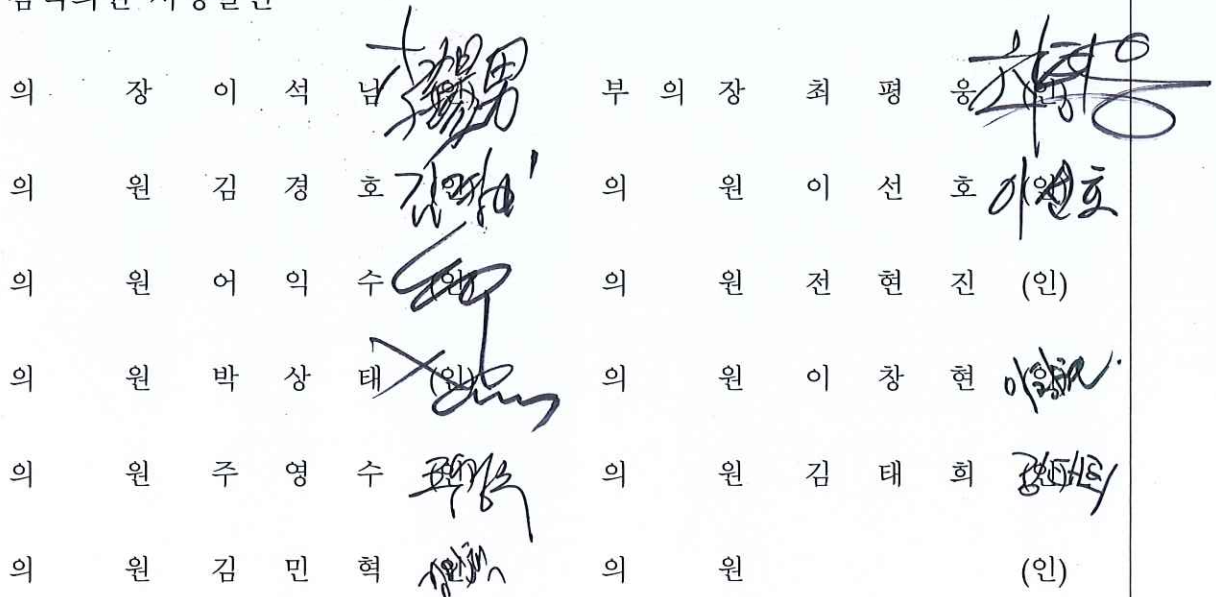 의 장 이 석 남 (인) 부 의 장 최 평 웅 (인)
의 원 김 경 호 (인) 의 원 이 선 호 (인) 이선호
의 원 어 익 수 (인) 의 원 전 현 진 (인)
의 원 박 상 태 (인) 의 원 이 창 현 (인)
의 원 주 영 수 (인) 의 원 김 태 희 (인)
의 원 김 민 혁 (인) 의 원 (인)